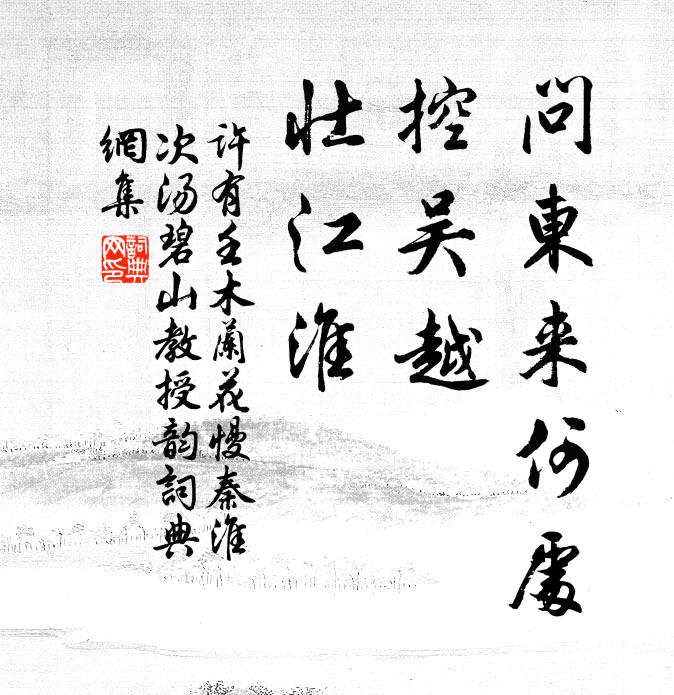 問東来何處
控吴越
壮江淮
許有壬木蘭花慢秦淮
次汤碧山教授韵詞典
網集
詞典
网印